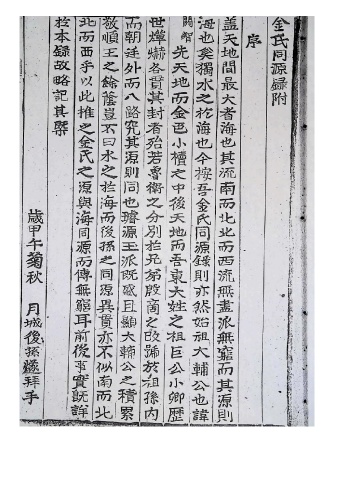 金氏同源錄附
序
盖天地間最大者海也其流南而北北而西流無盡派無窮而其源則
海也奚獨水之於海也今按吾金氏同源錄則亦然始祖大輔公也諱
閼智先天地而金色小櫝之中後天地而吾東大姓之祖巨公小卿歷
世燀爀各貫其封者殆若魯衛之分別於兄弟殷商之改歸於祖孫內
而朝廷外而八路究其源則同也璿源王派旣盛且顯大輔公之積累
敬順王之餘蔭豈不曰水之於海而後孫之同源異貫亦不似南而北
北而西乎以此推之金氏之源與海同源而傳無窮耳前後事實旣詳
於本錄故略記其槩
歲甲午菊秋 月城後孫 拜手